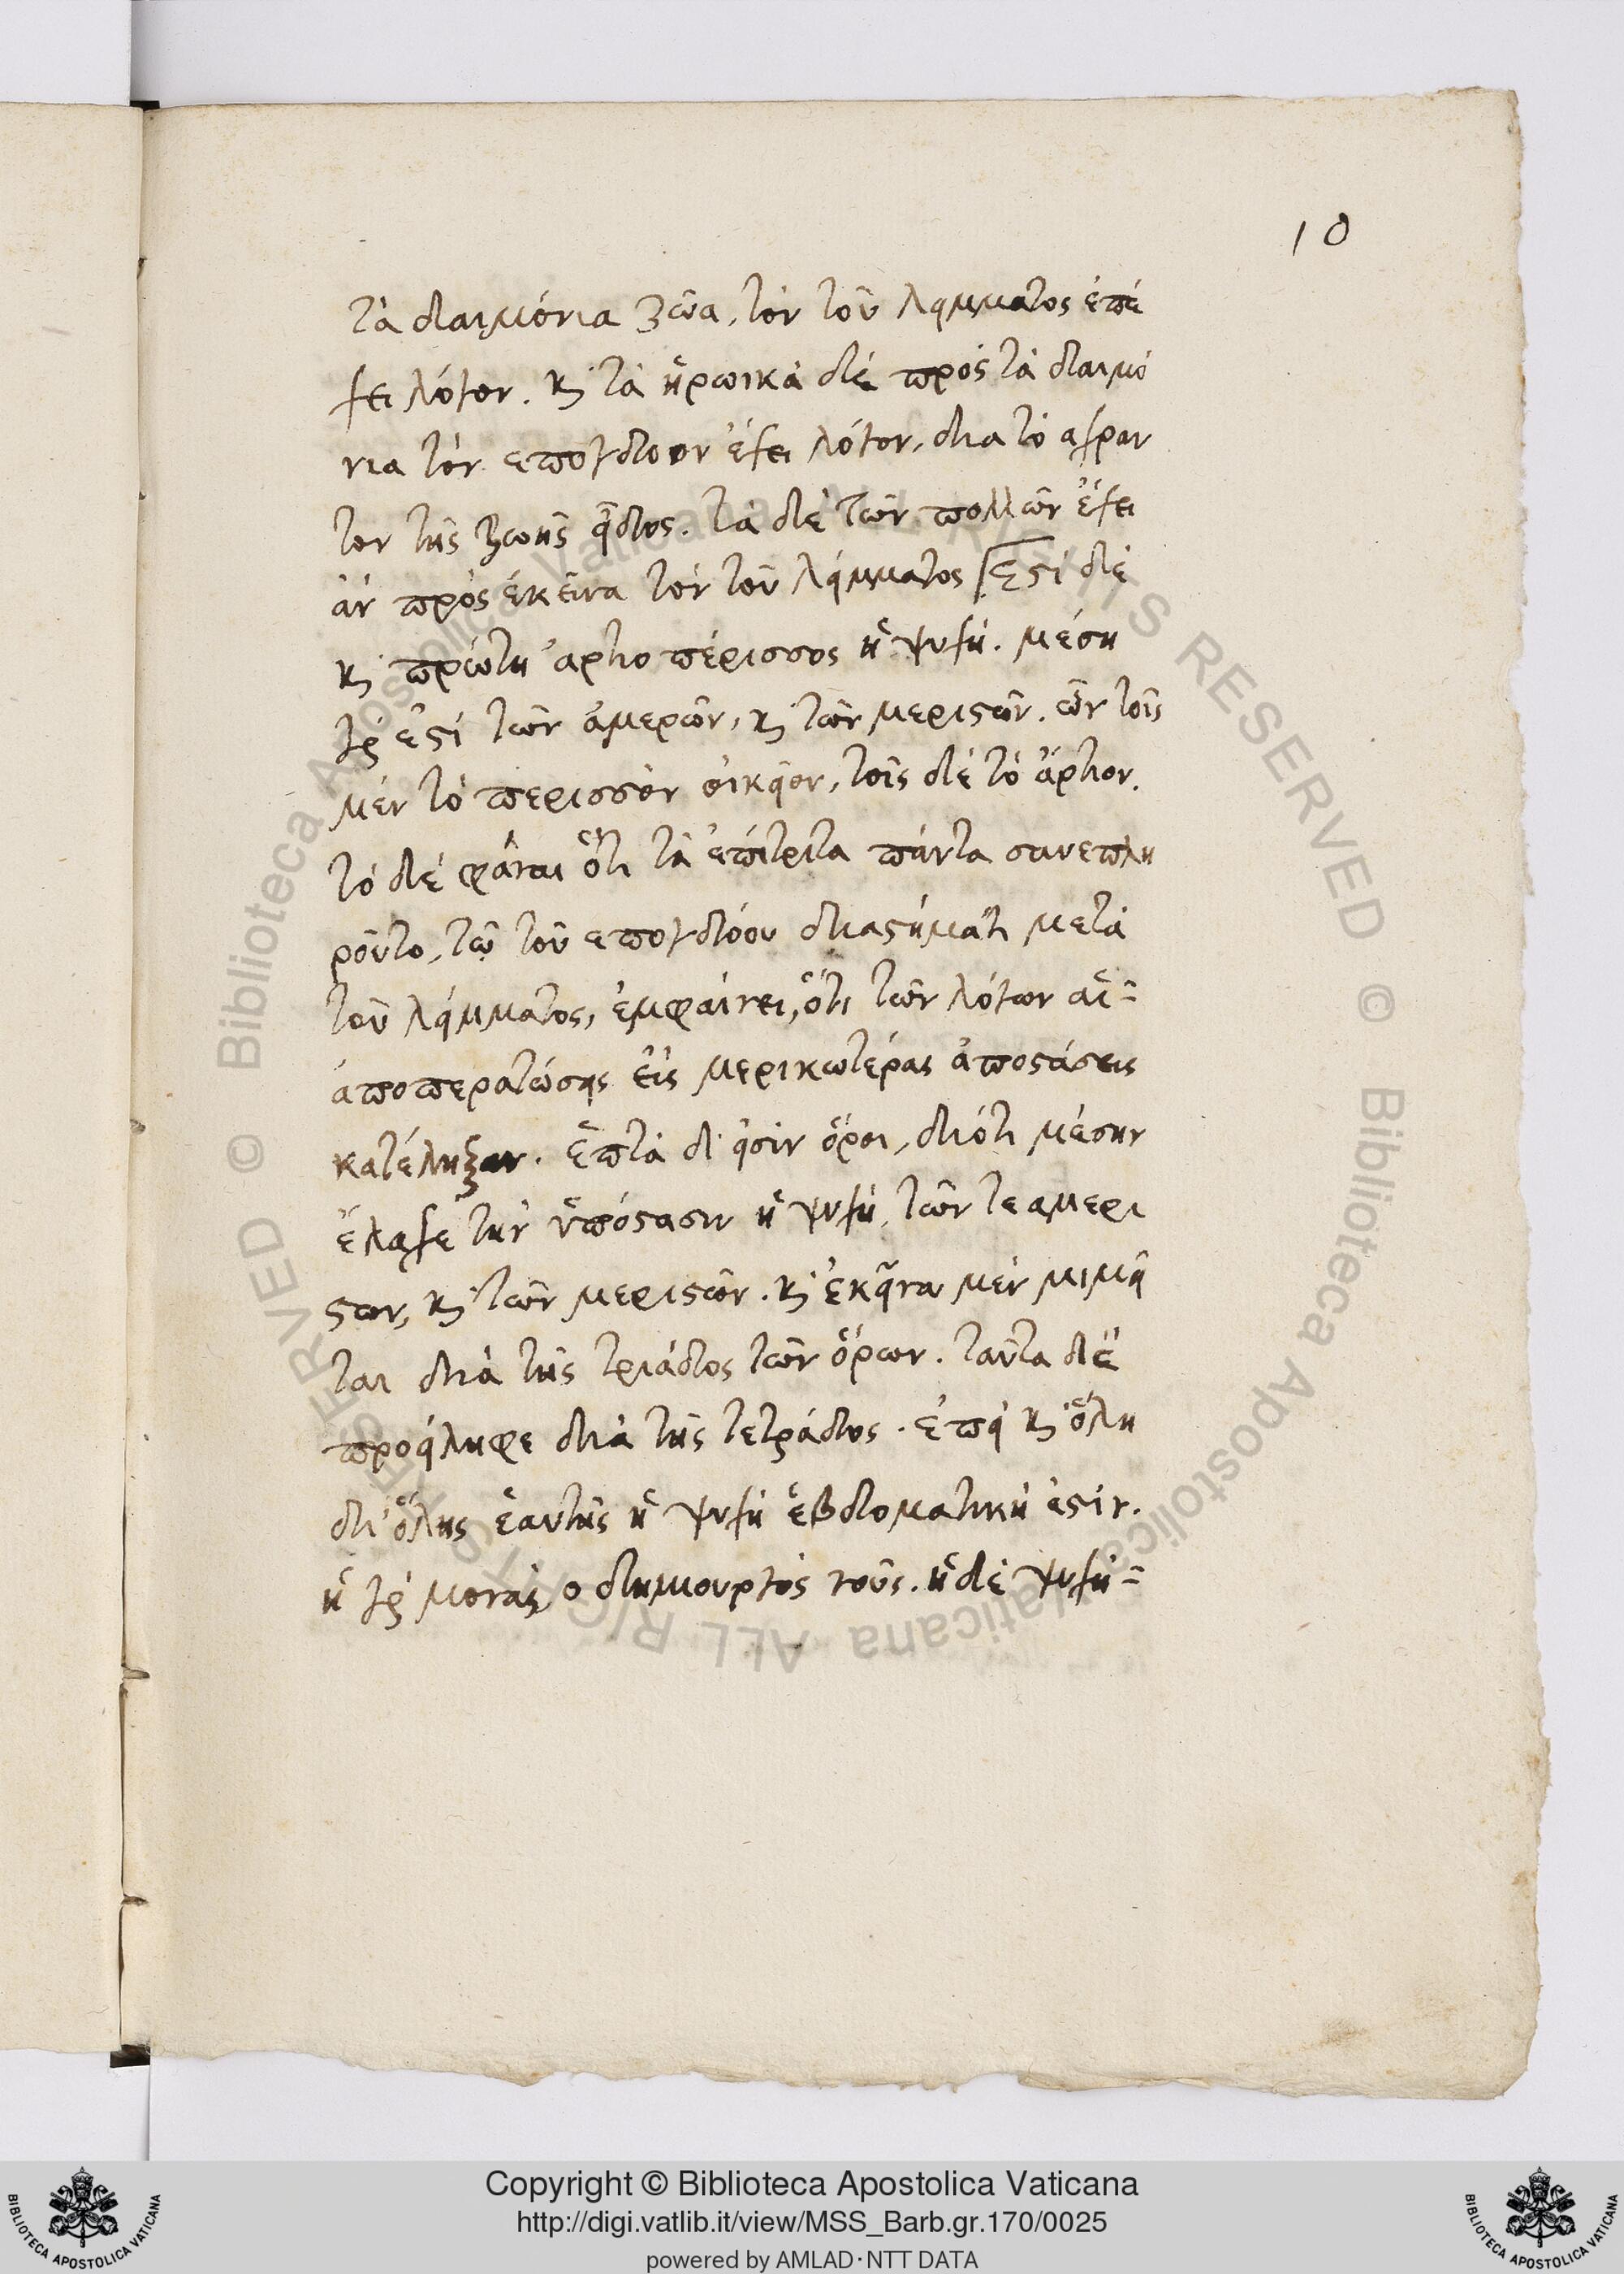 10
τὰ δαιμόνια ζῶα, τὸν τοῦ λείμματος ἐπέ
χει λόγον. καὶ τὰ ἡρωικὰ δὲ πρὸς τὰ δαιμό
νια τὸν εποгδοον ἔχει λόγον, δια τὸ αχραν
τον τῆς ζωῆς εἶδος. τὰ δὲ τῶν πολλῶν ἔχει
ἀν πρὸς ἐκεῖνα τὸν τοῦ λείμματος ἐστί δὲ
καὶ πρώτη ἀρτιοπέρισσος ἡ ψυχή. μέση
γάρ ἐστί τῶν ἀμερῶν, καὶ τῶν μεριστῶν. ὧν τοῖς
μέν τὸ περισσὸν οἰκεῖον, τοῖς δὲ τὸ ἄρτιον.
τὸ δὲ φάναι ὅτι τὰ ἐπίτριτα πάντα συνεπλη
ροῦτο, τῷ τοῦ εποгδόου διαστήματι μετὰ
τοῦ λείμματος, ἐμφαίνει, ὅτι τῶν λόγων αἱ
ἀποπερατώσεις εἰς μερικωτέρας ἀποστάσεις
κατέληξαν. ἑπτὰ δ' εἰσὶν ὅροι, διότι μέσην
ἔλαχε τὴν ὑπόστασιν ἡ ψυχή, τῶν τε αμερι
στων, καὶ τῶν μεριστῶν. καὶ ἐκεῖνα μὲν μιμεῖ
ται διὰ τῆς τριάδος τῶν ὅρων. ταῦτα δὲ
προείληφε διὰ τῆς τετράδος. ἐπεὶ καὶ ὅλη
δι' ὅλης ἑαυτῆς ἡ ψυχὴ ἑβδοματική ἐστίν.
ἡ γάρ μονάς ο δημιουργὸς νοῦς. ἡ δὲ ψυχή
© Biblioteca Apostolica Vaticana ALL RIGHTS RESERVED © Biblioteca Apostolica Vaticana ALL RIGHTS RESERVED
BIBLIOTECA APOSTOLICA VATICANA
Copyright © Biblioteca Apostolica Vaticana
http://digi.vatlib.it/view/MSS_Barb.gr.170/0025
powered by AMLAD·NTT DATA
BIBLIOTECA APOSTOLICA VATICANA